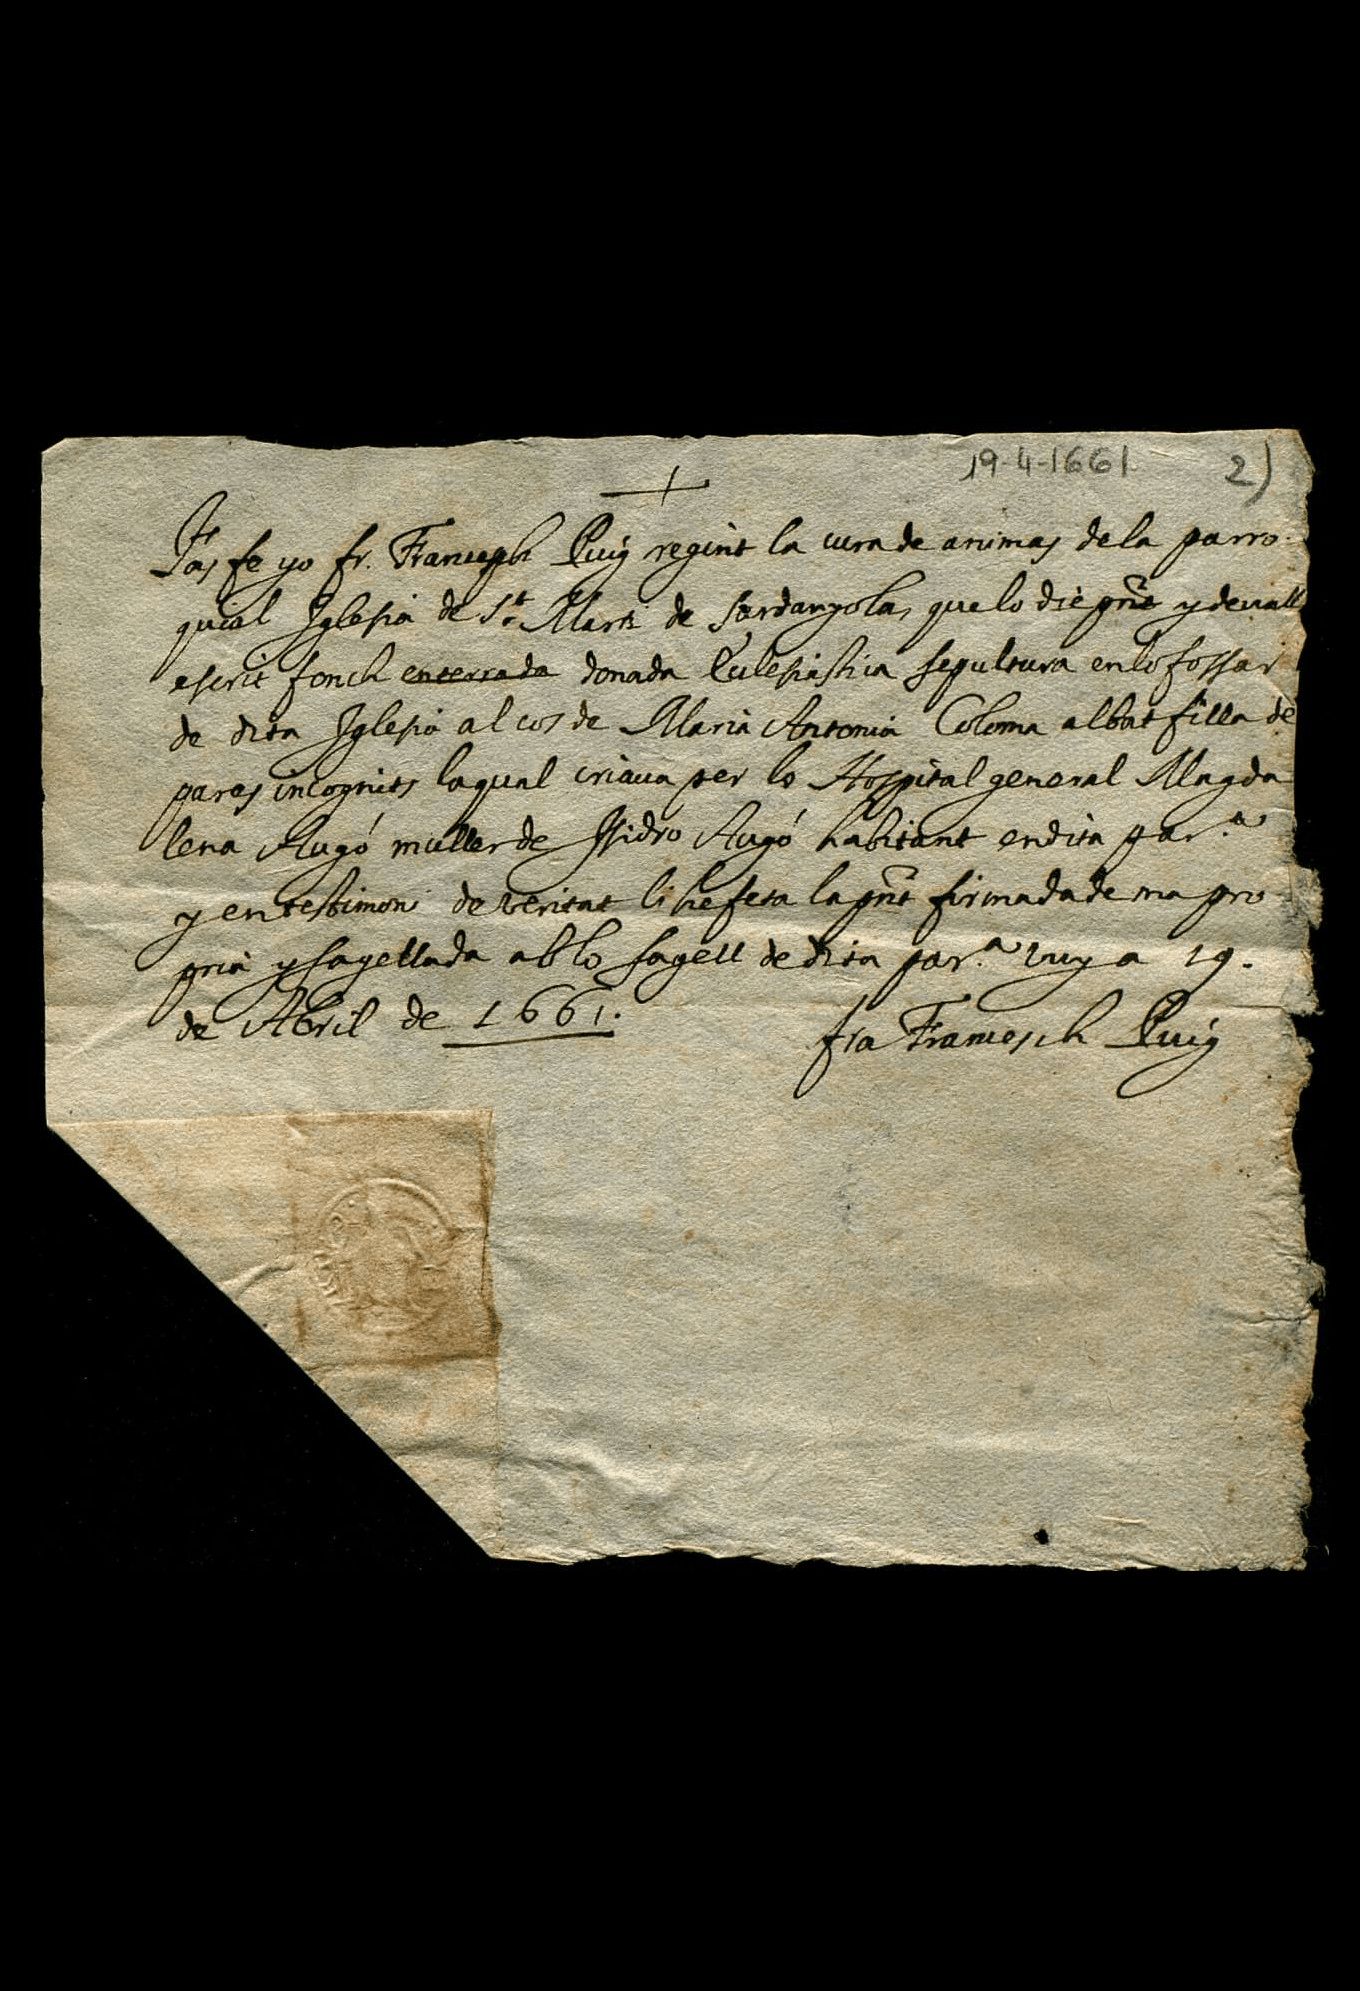 19-4-1661. 2)
Fas fe yo fr. Francesch Puig regint la cura de animas de la parro-
quial Iglesia de St. Marti de Sardanyola, que lo die pnt y devall
escrit fonch enterrada donada Eclesiastica sepultura en lo fossar
de dita Iglesia al cos de Maria Antonia Coloma albat filla de
pares incognits la qual criava per lo Hospital general Magda
lena Augó muller de Isidro Augó habitant en dita par.a
y en testimoni de veritat li he feta la pnt firmada de ma pro
pria y sagellada ab lo sagell de dita par.a vuy a 19.
de Abril de 1661.
fra Francesch Puig